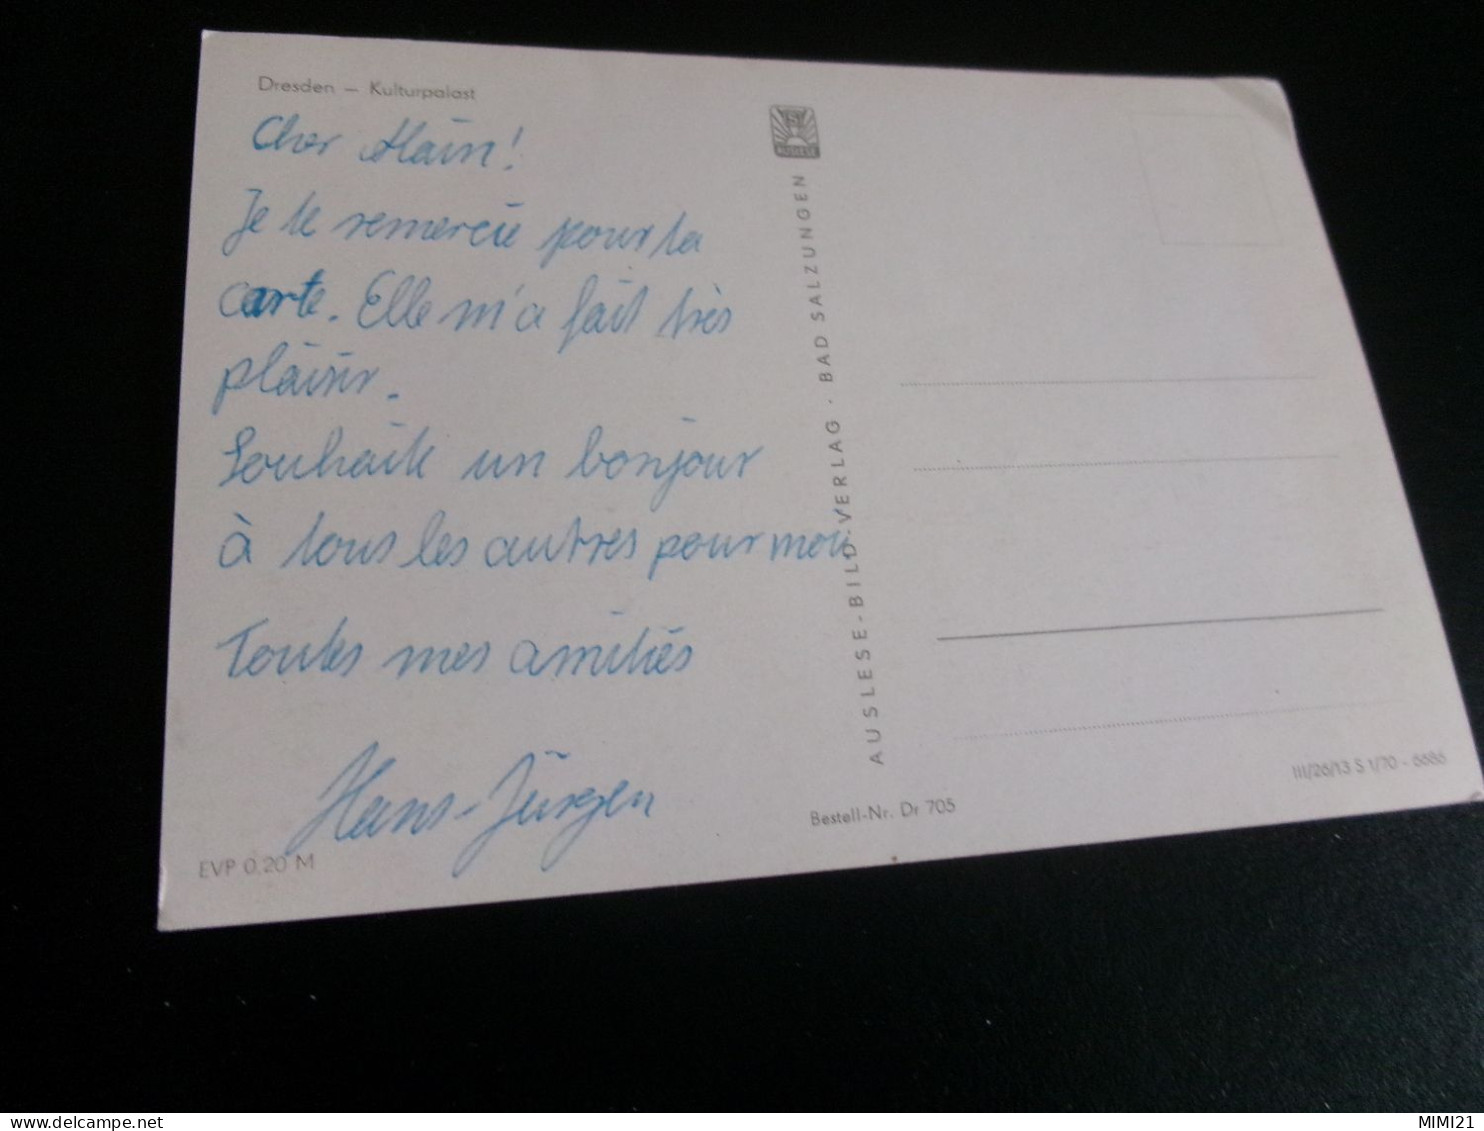 Dresden – Kulturpalast
Cher Alain!
Je te remercie pour ta
carte. Elle m'a fait très
plaisir.
Souhaite un bonjour
à tous les autres pour moi
Toutes mes amitiés
Hans-Jürgen
EVP 0.20 M
AUSLESE-BILD-VERLAG · BAD SALZUNGEN
Bestell-Nr. Dr 705
III/26/13 S 1/70 - 6686
delcampe.net
MIMI21